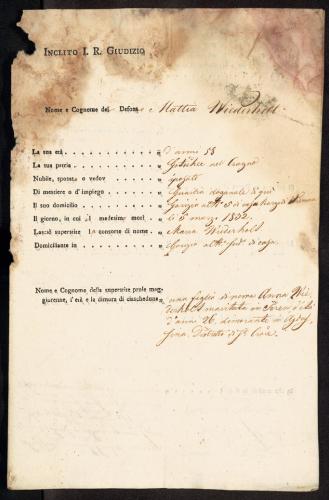 INCLITO I. R. GIUDIZIO
Nome e Cognome del Defonto Mattia Wiederholt
La sua età „ d'anni 58
La sua patria „ nel Cragno
Nubile, sposato o vedovo „ sposato
Di mestiere o d'impiego „ Guardia doganale di qui
Il suo domicilio „ Gorizia al N. 5 di casa
Il giorno, in cui il medesimo morì „ li 5 marzo 1832.
Lasciò superstite la consorte di nome „ Maria Widerholt
Domiciliante in „ Gorizia al N. sud. di casa.
Nome e Cognome della superstite prole mag-
giorenne, l'età e la dimora di ciascheduno „ una figlia di nome Anna Wie-
derholt maritata in d'età
d'anni 26, dimorante in
Distretto di S. Croce.